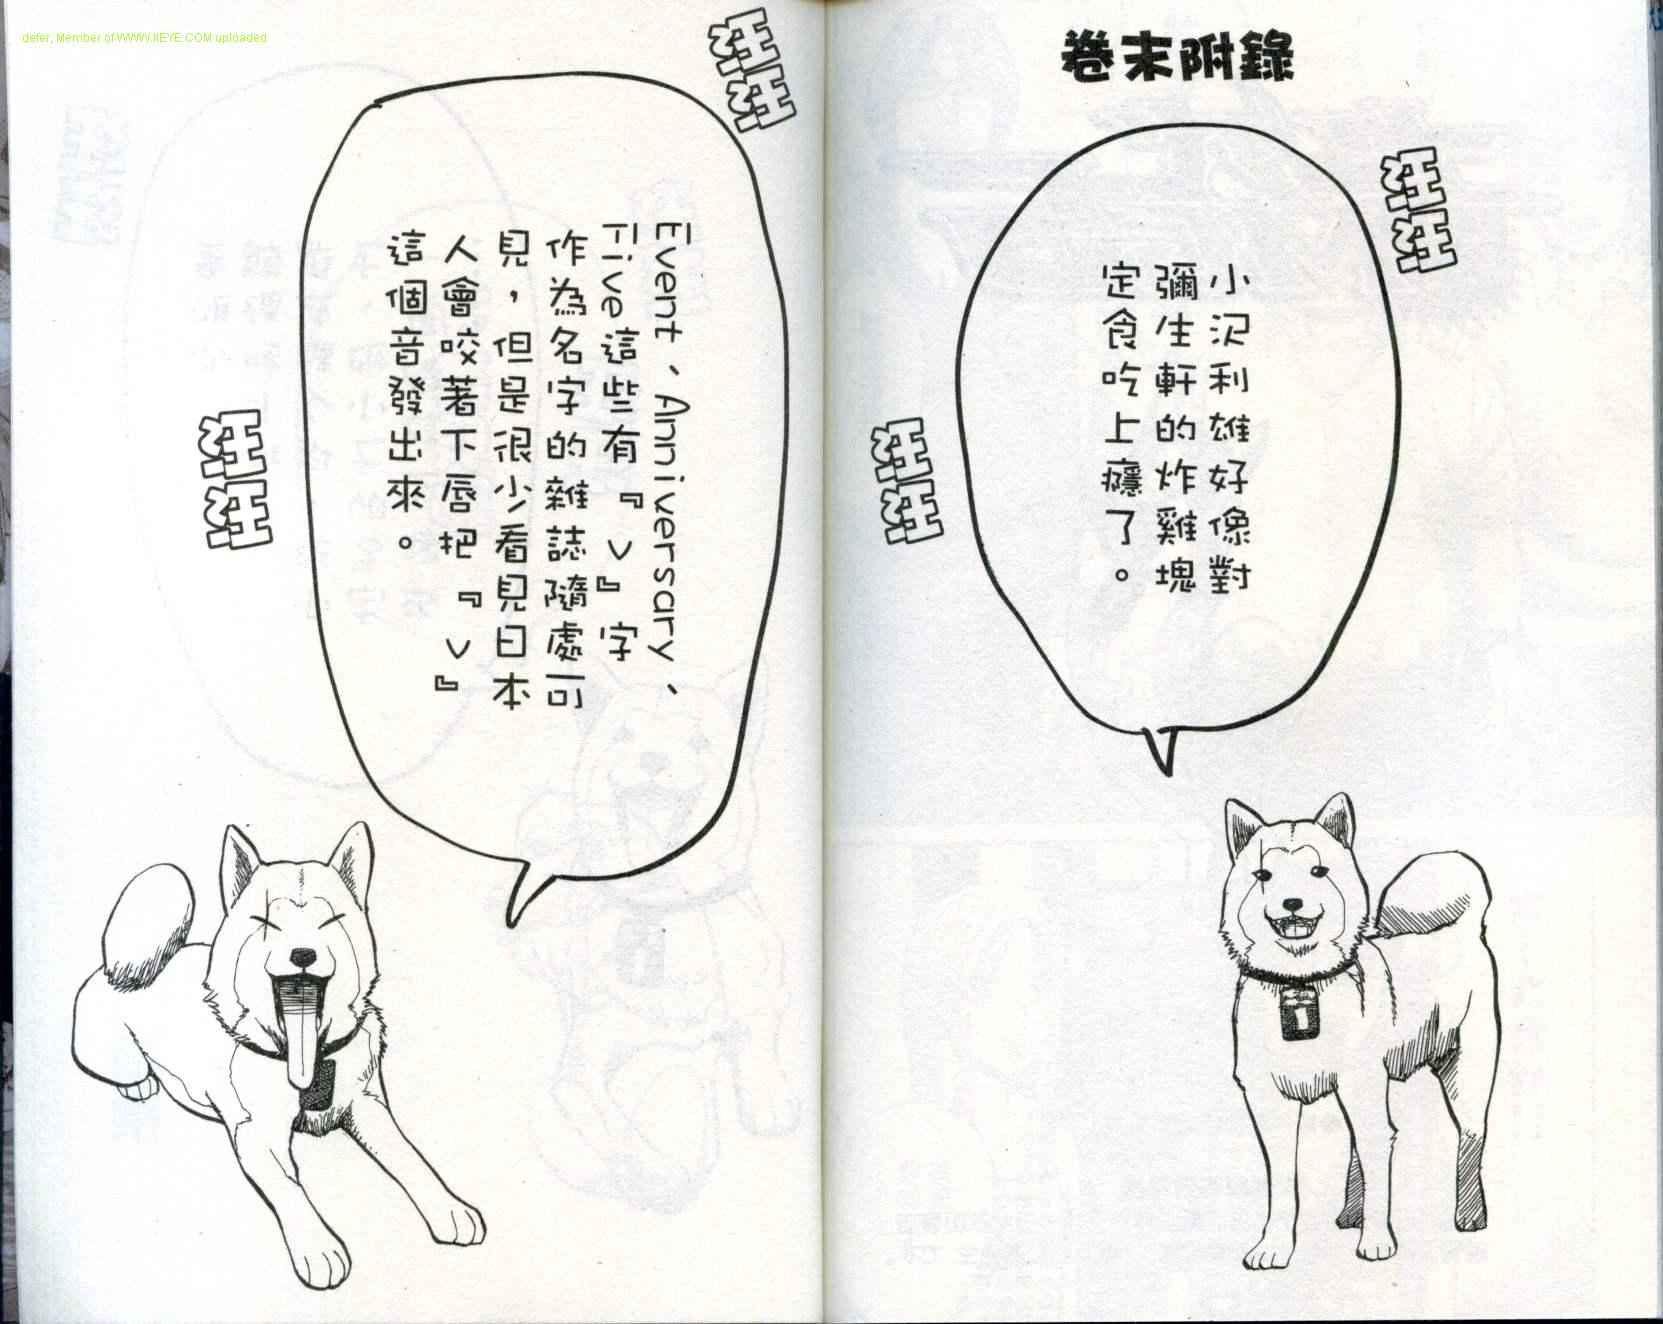 卷末附錄
汪汪
小沢利雄好像對
彌生軒的炸雞塊
定食吃上癮了。
汪汪
汪汪
Event、Anniversary、
Five這些有『V』字
作為名字的雜誌隨處可
見，但是很少看見日本
人會咬著下唇把『V』
這個音發出來。
汪汪
defer, Member of WWW.IIEYE.COM uploaded